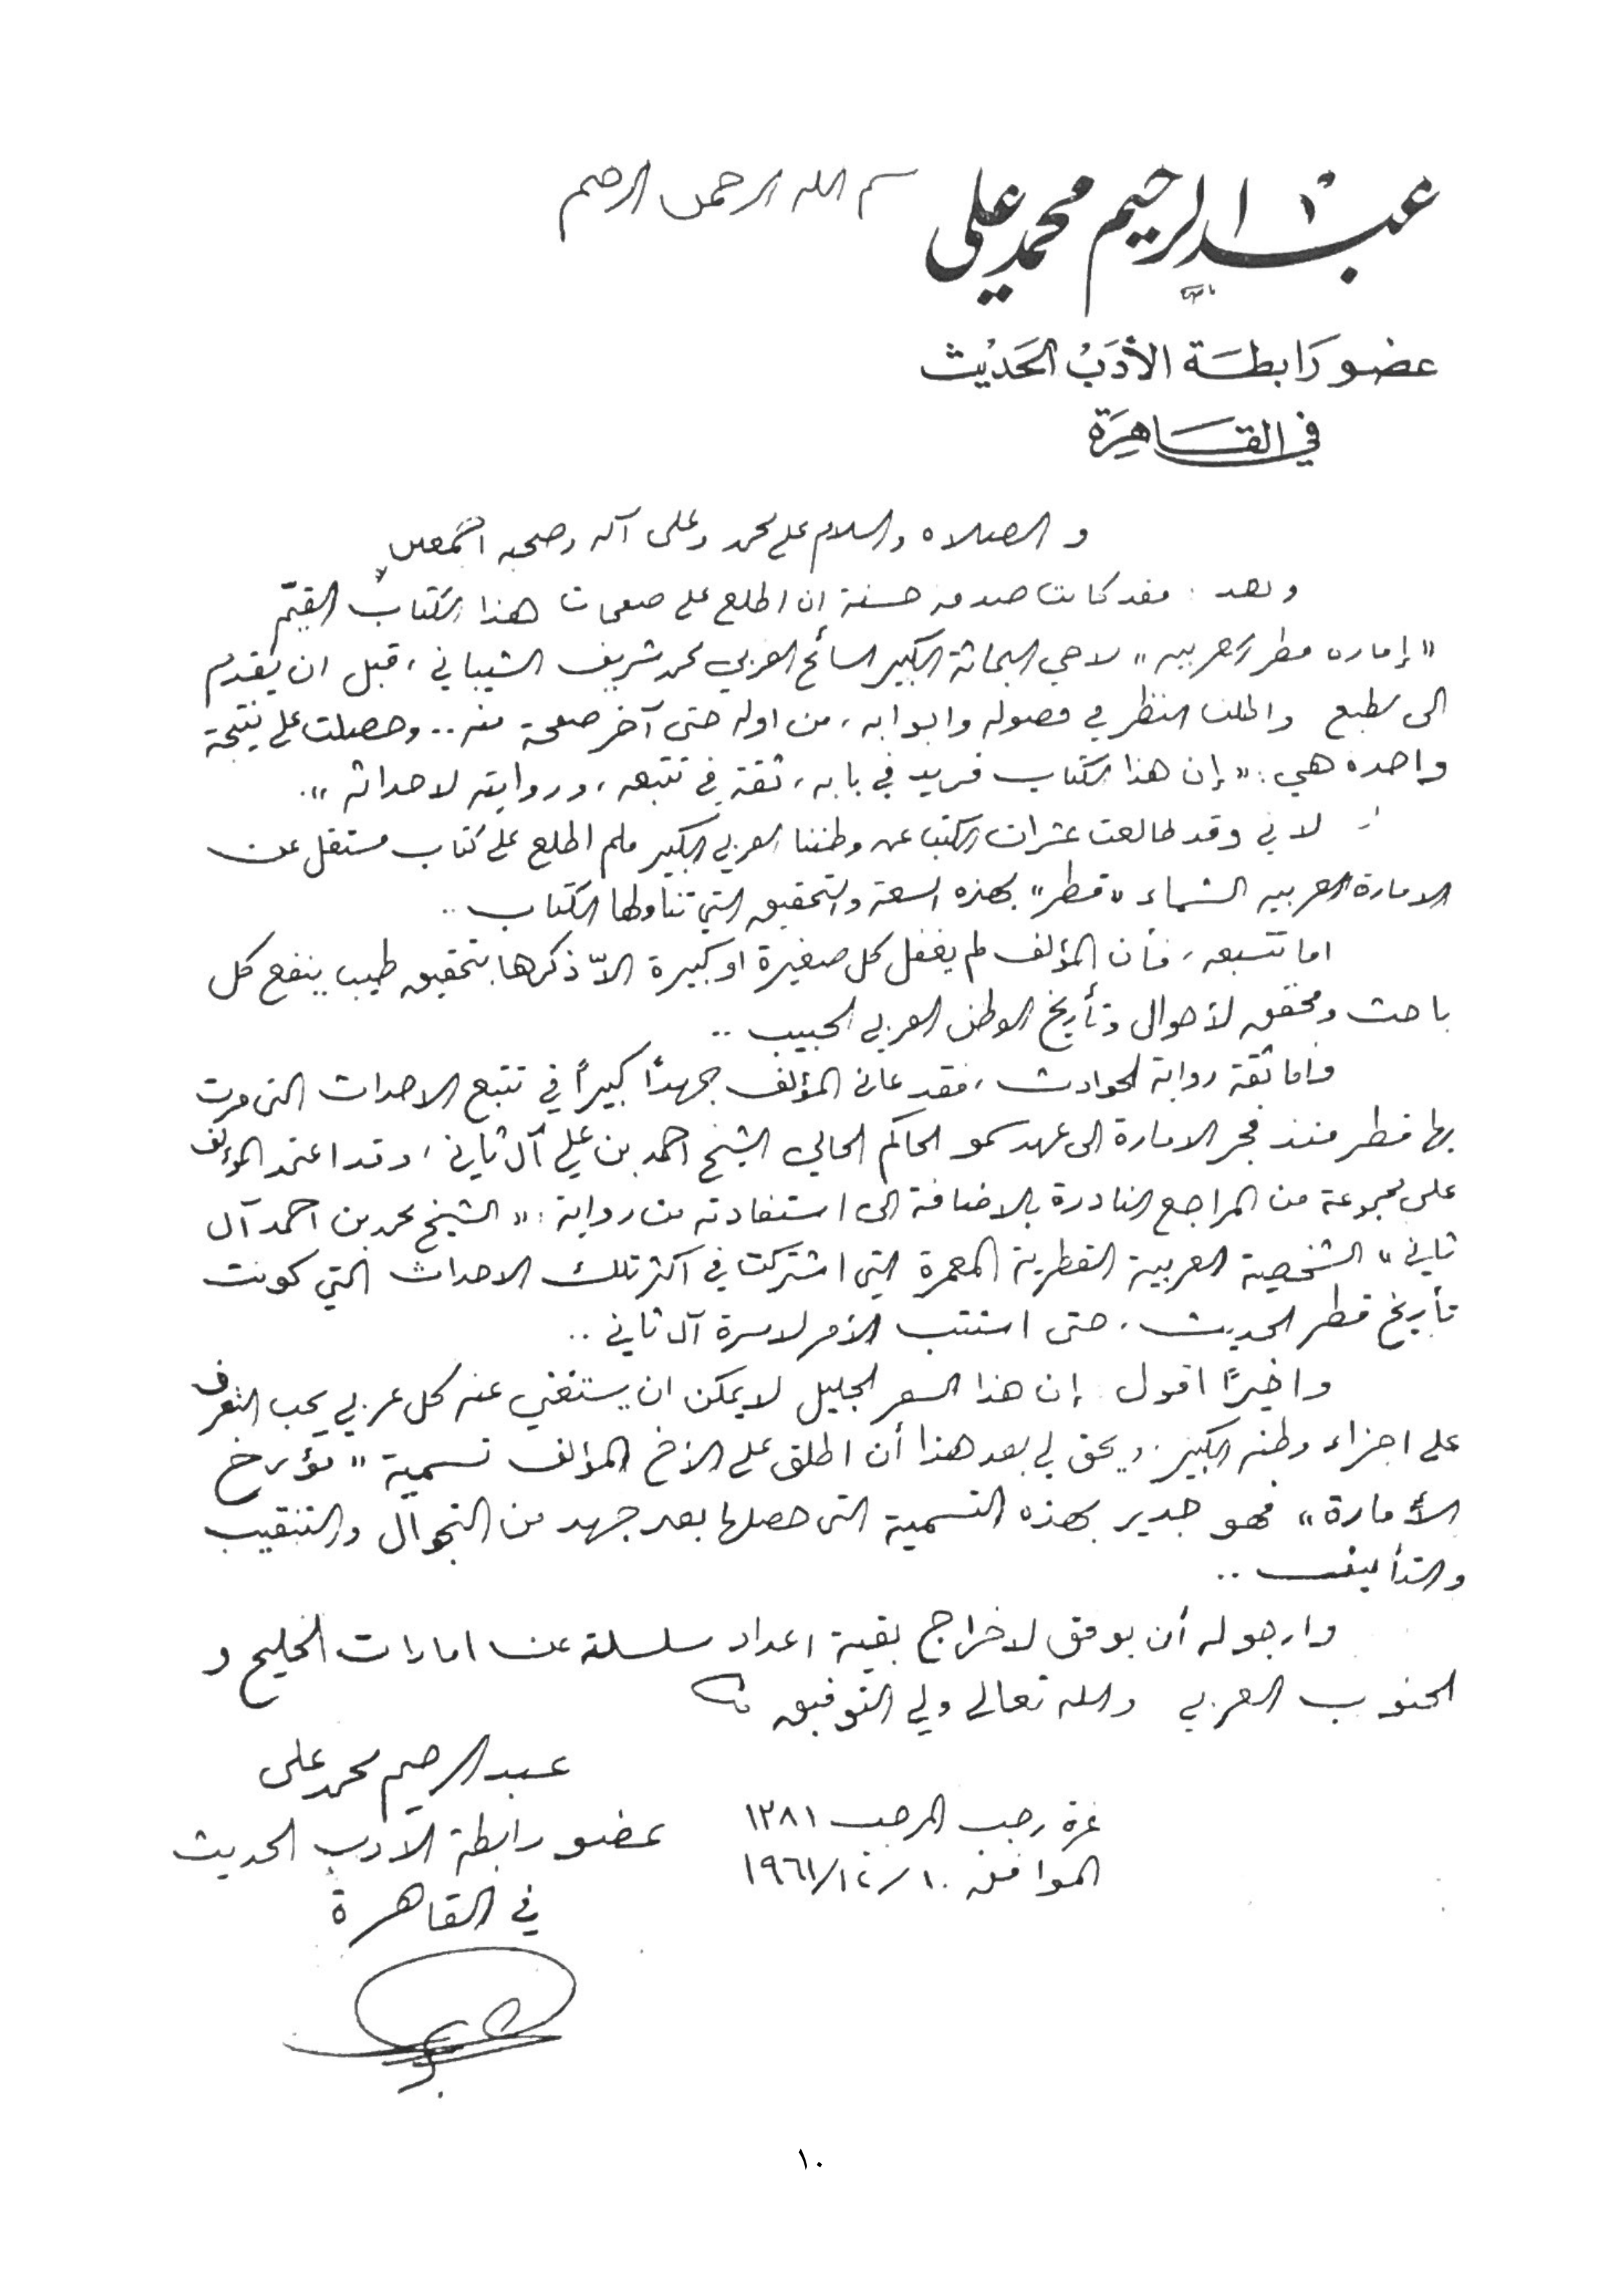 بسم الله الرحمن الرحيم
عبد الرحيم محمد علي
عضو رابطة الأدب الحديث
في القاهرة
و الصلاه والسلام على محمد وعلى آله وصحبه اجمعين
وبعد : فقد كانت صدفه حسنة ان اطلع على صفحات هذا الكتاب القيّم
« إماره قطر العربيه » لاخي البحاثة الكبير السائح العربي محمد شريف الشيباني ، قبل ان يُقدم
الى الطبع واطلت النظر في فصوله وابوابه ، من اوله حتى آخر صفحة منه .. وحصلت على نتيجة
واحدة هي : « إن هذا الكتاب فريد في بابه ، ثقة في تتبعه ، وروايته لاحداثه » .
لاني وقد طالعت عشرات الكتب عن وطننا العربي الكبير فلم اطلع على كتاب مستقل عن
الامارة العربيه الشماء « قطر » بهذه السعة والتحقيق التي تناولها الكتاب ..
اما تتبعه ، فأن المؤلف لم يغفل كل صغيرة او كبيرة الاّ ذكرها بتحقيق طيب ينفع كل
باحث ومحقق لأحوال وتأريخ الوطن العربي الحبيب ..
واما ثقة رواية الحوادث ، فقد عانى المؤلف جهداً كبيراً في تتبع الاحداث التي مرت
بها قطر منذ فجر الامارة الى عهد سمو الحاكم الحالي الشيخ احمد بن علي آل ثاني ، وقد اعتمد المؤلف
على مجموعة من المراجع النادرة بالاضافة الى استفادته من رواية : « الشيخ محمد بن احمد آل
ثاني » الشخصية العربية القطرية المعمرة التي اشتركت في اكثر تلك الاحداث التي كونت
تأريخ قطر الحديث ، حتى استتب الأمر لاسرة آل ثاني ..
واخيراً اقول : إن هذا السفر الجليل لا يمكن ان يستغني عنه كل عربي يحب التعرف
على اجزاء وطنه الكبير . ويحق لي بعد هذا أن اطلق على الأخ المؤلف تسمية « مؤرخ
الأمارة » فهو جدير بهذه التسمية التي حصلها بعد جهد من التجوال والتنقيب
والتأليف ..
وارجو له أن يوفق لاخراج بقية اعداد سلسلة عن امارات الخليج و
الجنوب العربي والله تعالى ولي التوفيق
عبد الرحيم محمد علي
عضو رابطة الأدب الحديث
في القاهرة
غرة رجب المرجب ١٣٨١
الموافق ١٠/١٢/١٩٦١
١٠